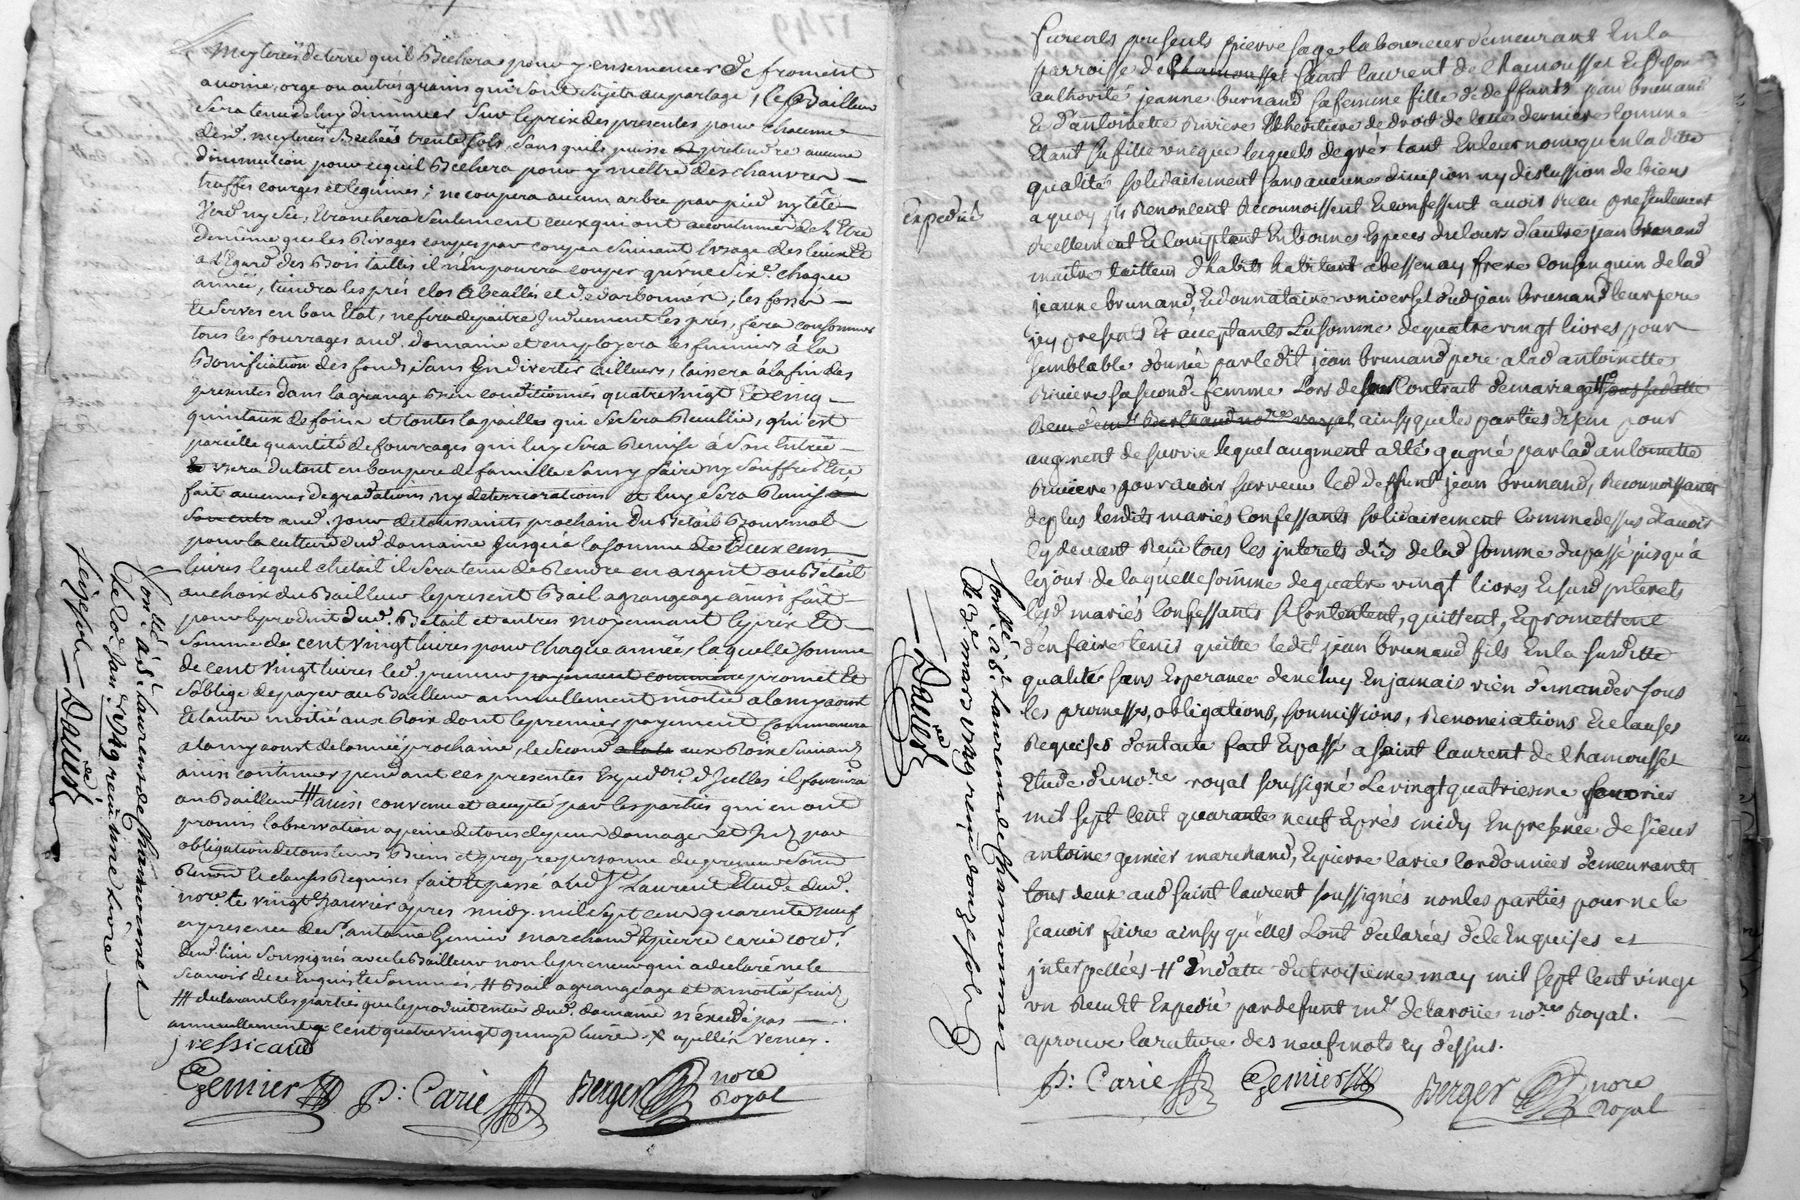 meyterées de terre qu'il Bechera pour y ensemencer de froment
avoine, orge ou autres grains qui sont sujets au partage, le Bailleur
sera tenu de luy diminuer sur le prix des presentes pour chacune
desd. meyterées Bechées trente sols, sans qu'il puisse pretendre aucune
diminution pour ce qu'il Bechera pour y mettre des chanvres
truffes courges et legumes; ne coupera aucun arbre par pied ny tête
Verd ny sec, Ebranchera seulement ceux qui ont accoutumés de L'Etre
de même que les Rivages coupes par coupes suivant l'usage des lieux Et
a L'Egard des Bois taillis il n'En pourra couper qu'une chaque
année, tiendra les prés clos Et les fossés
Et serves en bon Etat, ne fera depaitre les prés, fera consommer
tous les fourrages aud. domaine et employera les fumiers à la
Bonification des fonds sans En divertir ailleurs, laissera à la fin des
presentes dans la grange Bien conditionnés quatre vingt Et cinq
quintaux de foin et toutes les pailles qui se sera Recullie, qu'est
pareille quantité de fourrages qui luy sera Remise à son Entrée
vivra du tout en bon pere de famille sans y faire ny souffrir Etre
fait aucunes degradations ny deteriorations et luy sera Remis
aud. jour de toussaints prochain du Betail Bouvinal
pour la culture dud. domaine jusqu'à la somme de Deux cens
livres lequel chetail il sera tenu de Rendre en argent ou Bétail
au choix du Bailleur le present Bail a grangeage ainsi fait
pour le produit dud. Betail et autres moyennant le prix Et
somme de cent vingt livres pour chaque année, laquelle somme
de cent vingt livres led. preneur payement commence promet Et
s'oblige de payer au Bailleur annuellement moitié a la my aoust
Et l'autre moitié aux Rois dont le premier payement commencera
a la my aoust de l'année prochaine, le second a la aux Rois suivant
ainsi continuer pendant ces presentes Expedon d'Jcelles il fournira
au Bailleur ainsi convenu et accepté par les parties qui en ont
promis l'observation a peine de tous depens domages et par
obligation de tous leurs Biens et propre personne du preneur
Renon. Et clauses Requises fait Et passé aud. St. Laurent Etude dud.
nore. le vingt Janvier après midy mil sept cens quarente neuf
en presence de sr. antoine Gemier marchand Et pierre carie cord.r
dud. lieu soussignés avec le Bailleur non le preneur qui a declaré ne le
scavoir de ce Enquis Et sommés, # Bail a grangeage et a moitié fruits
declarant les parties que le produit entier dud. domaine n'éxede pas
annuellement cent quatre vingt quinze livres X apellés vernay.
j vessicaud
Gemier P: Carie Berger nore Royal
Contlé à St. Laurens de Chamousset
le 20 Janv. 1749 reçu une livre
six sols
Dauest
expedié
Furent presents pierre sage laboureur demeurant En la
parroisse de Chamousset saint laurent de chamousset Et de son
authorité jeanne brunand sa femme fille de deffunts jean brunand
Et d'antoinette Riviere Et heritiere de droit de cette derniere comme
Etant sa fille unique lesquels de gré tant En leur nom qu'en la ditte
qualité solidairement sans aucune division ny discussion de biens
a quoy ils Renoncent Reconnoissent Et confessent avoir Recu presentement
Reellement Et Comptant En bonnes Especes du cours d'autre jean brunand
maitre tailleur d'habits habitant a bessenay frere consenguin de lad
jeanne brunand, Et donnataire universel dud jean brunand leur pere
icy present Et acceptant La somme de quatre vingt livres pour
semblable donnée par ledit jean brunand pere a lad antoinette
Riviere sa seconde femme Lors de leur Contrat de mariage
ainsy que les parties disent pour
augment de survie lequel augment a Eté gagné par lad antoinette
Riviere pour avoir survecu led deffunt jean brunand, Reconnoissants
de plus lesdits mariés Confessants solidairement Comme dessus d'avoir
cy devant Recu tous les interets dus de lad somme du passé jusqu'à
ce jour de laquelle somme de quatre vingt livres Et susd interets
lesd mariés Confessants se Contentent, quittent, Et promettent
d'en faire tenir quitte ledit jean brunand fils En la susditte
qualité sans Esperance de ne luy En jamais rien demander sous
les promesses, obligations, soumissions, Renonciations Et clauses
Requises dont acte fait Et passé a saint laurent de chamousset
Etude du nore royal soussigné Le vingt quatrieme fevrier
mil sept cent quarante neuf après midy En presence de sieur
antoine gemier marchand, Et pierre carie Cordonnier demeurants
tous deux aud saint laurent soussignés non les parties pour ne le
scavoir faire ainsy qu'elles L'ont declarées de ce Enquises et
interpellées # En datte du troisieme may mil sept cent vingt
un Recu Et Expedié par defunt me delaroue nore Royal.
aprouve la rature des neuf mots cy dessus.
P: Carie Gemier Berger nore Royal
Contlé à St. Laurens de Chamousset
le 8e mars 1749 reçu douze sols
Dauest